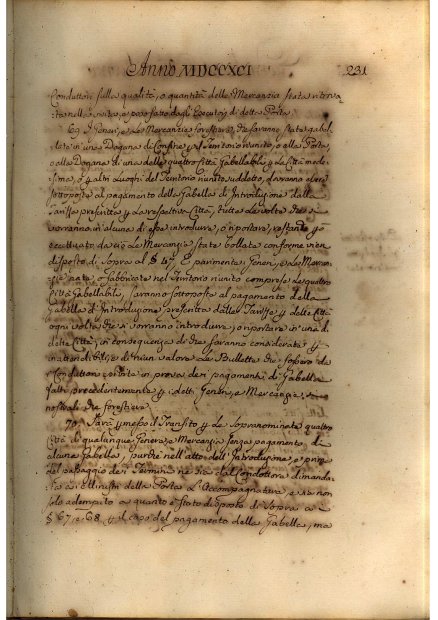 Anno MDCCXCI 231
Conduttori sulla qualità, o quantità delle Mercanzie stata ritrova
ta nella visita, e peso fatto dagli Esecutori di detta Porta.
69. I Generi, e le Mercanzie forestiere, che saranno state gabel
late in una Dogana di Confine pel Territorio riunito, o alla Porta,
o alla Dogana di una delle quattro Città Gabellabili, le Città mede
sime, o altri Luoghi del Territorio riunito suddetto, dovranno essere
sottoposte al pagamento della Gabella di Introduzione dalla
Tariffa prescritta per le respettive Città, tutte le volte che si
vorranno in alcuna di esse introdurre, o riportare, restando
eccettuate da ciò le Mercanzie state bollate conforme vien
disposto di Sopra al § 47. E parimente i Generi, e le Mercan
zie nate, o fabbricate nel Territorio riunito comprese le quattro
Città Gabellabili, saranno sottoposte al pagamento della
Gabella d'Introduzione prescritta dalle Tariffe di dette Città
ogni volta che si vorranno introdurre, o riportare in una di
dette Città, in conseguenza di che saranno considerate
inattendibili, e di niun valore le Bullette che fossero da
Conduttore esibite in prova dei pagamenti di Gabella
fatti precedentemente per i detti Generi, e Mercanzie,
nostrali che forestiere.
70. Sarà permesso il Transito per le Sopranominate quattro
Città di qualunque Genere, e Mercanzia senza pagamento di
alcuna Gabella, purchè nell'atto dell'Introduzione, e prima
del passaggio dei Termini ne sia dal Conduttore dimanda
ta ai Ministri della Porta l'Accompagnatura, e sia non
solo adempito a quanto è stato disposto di Sopra ai
§ 67, e 68 per il capo del pagamento della Gabella, ma